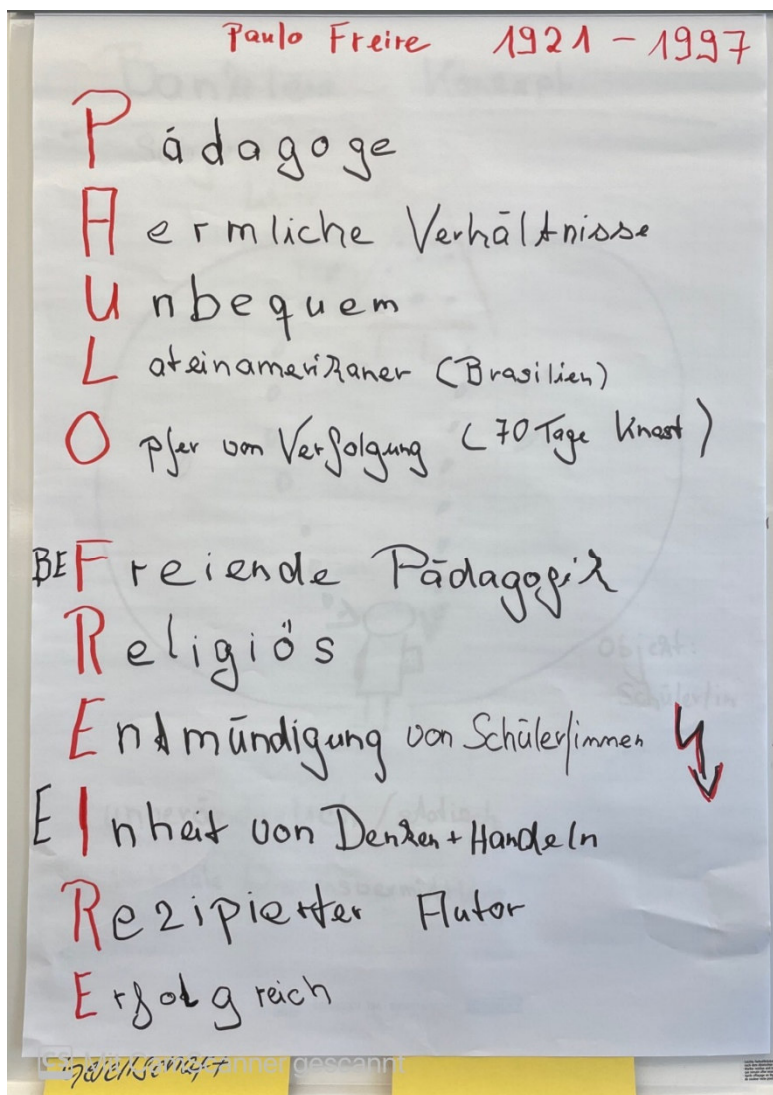 Paulo Freire 1921 - 1997
Pädagoge
Aermliche Verhältnisse
Unbequem
Lateinamerikaner (Brasilien)
Opfer von Verfolgung (70 Tage Knast)
BEFreiende Pädagogik
Religiös
Entmündigung von Schüler/innen
EInheit von Denken + Handeln
Rezipierter Autor
Erfolgreich
CS Mit CamScanner gescannt